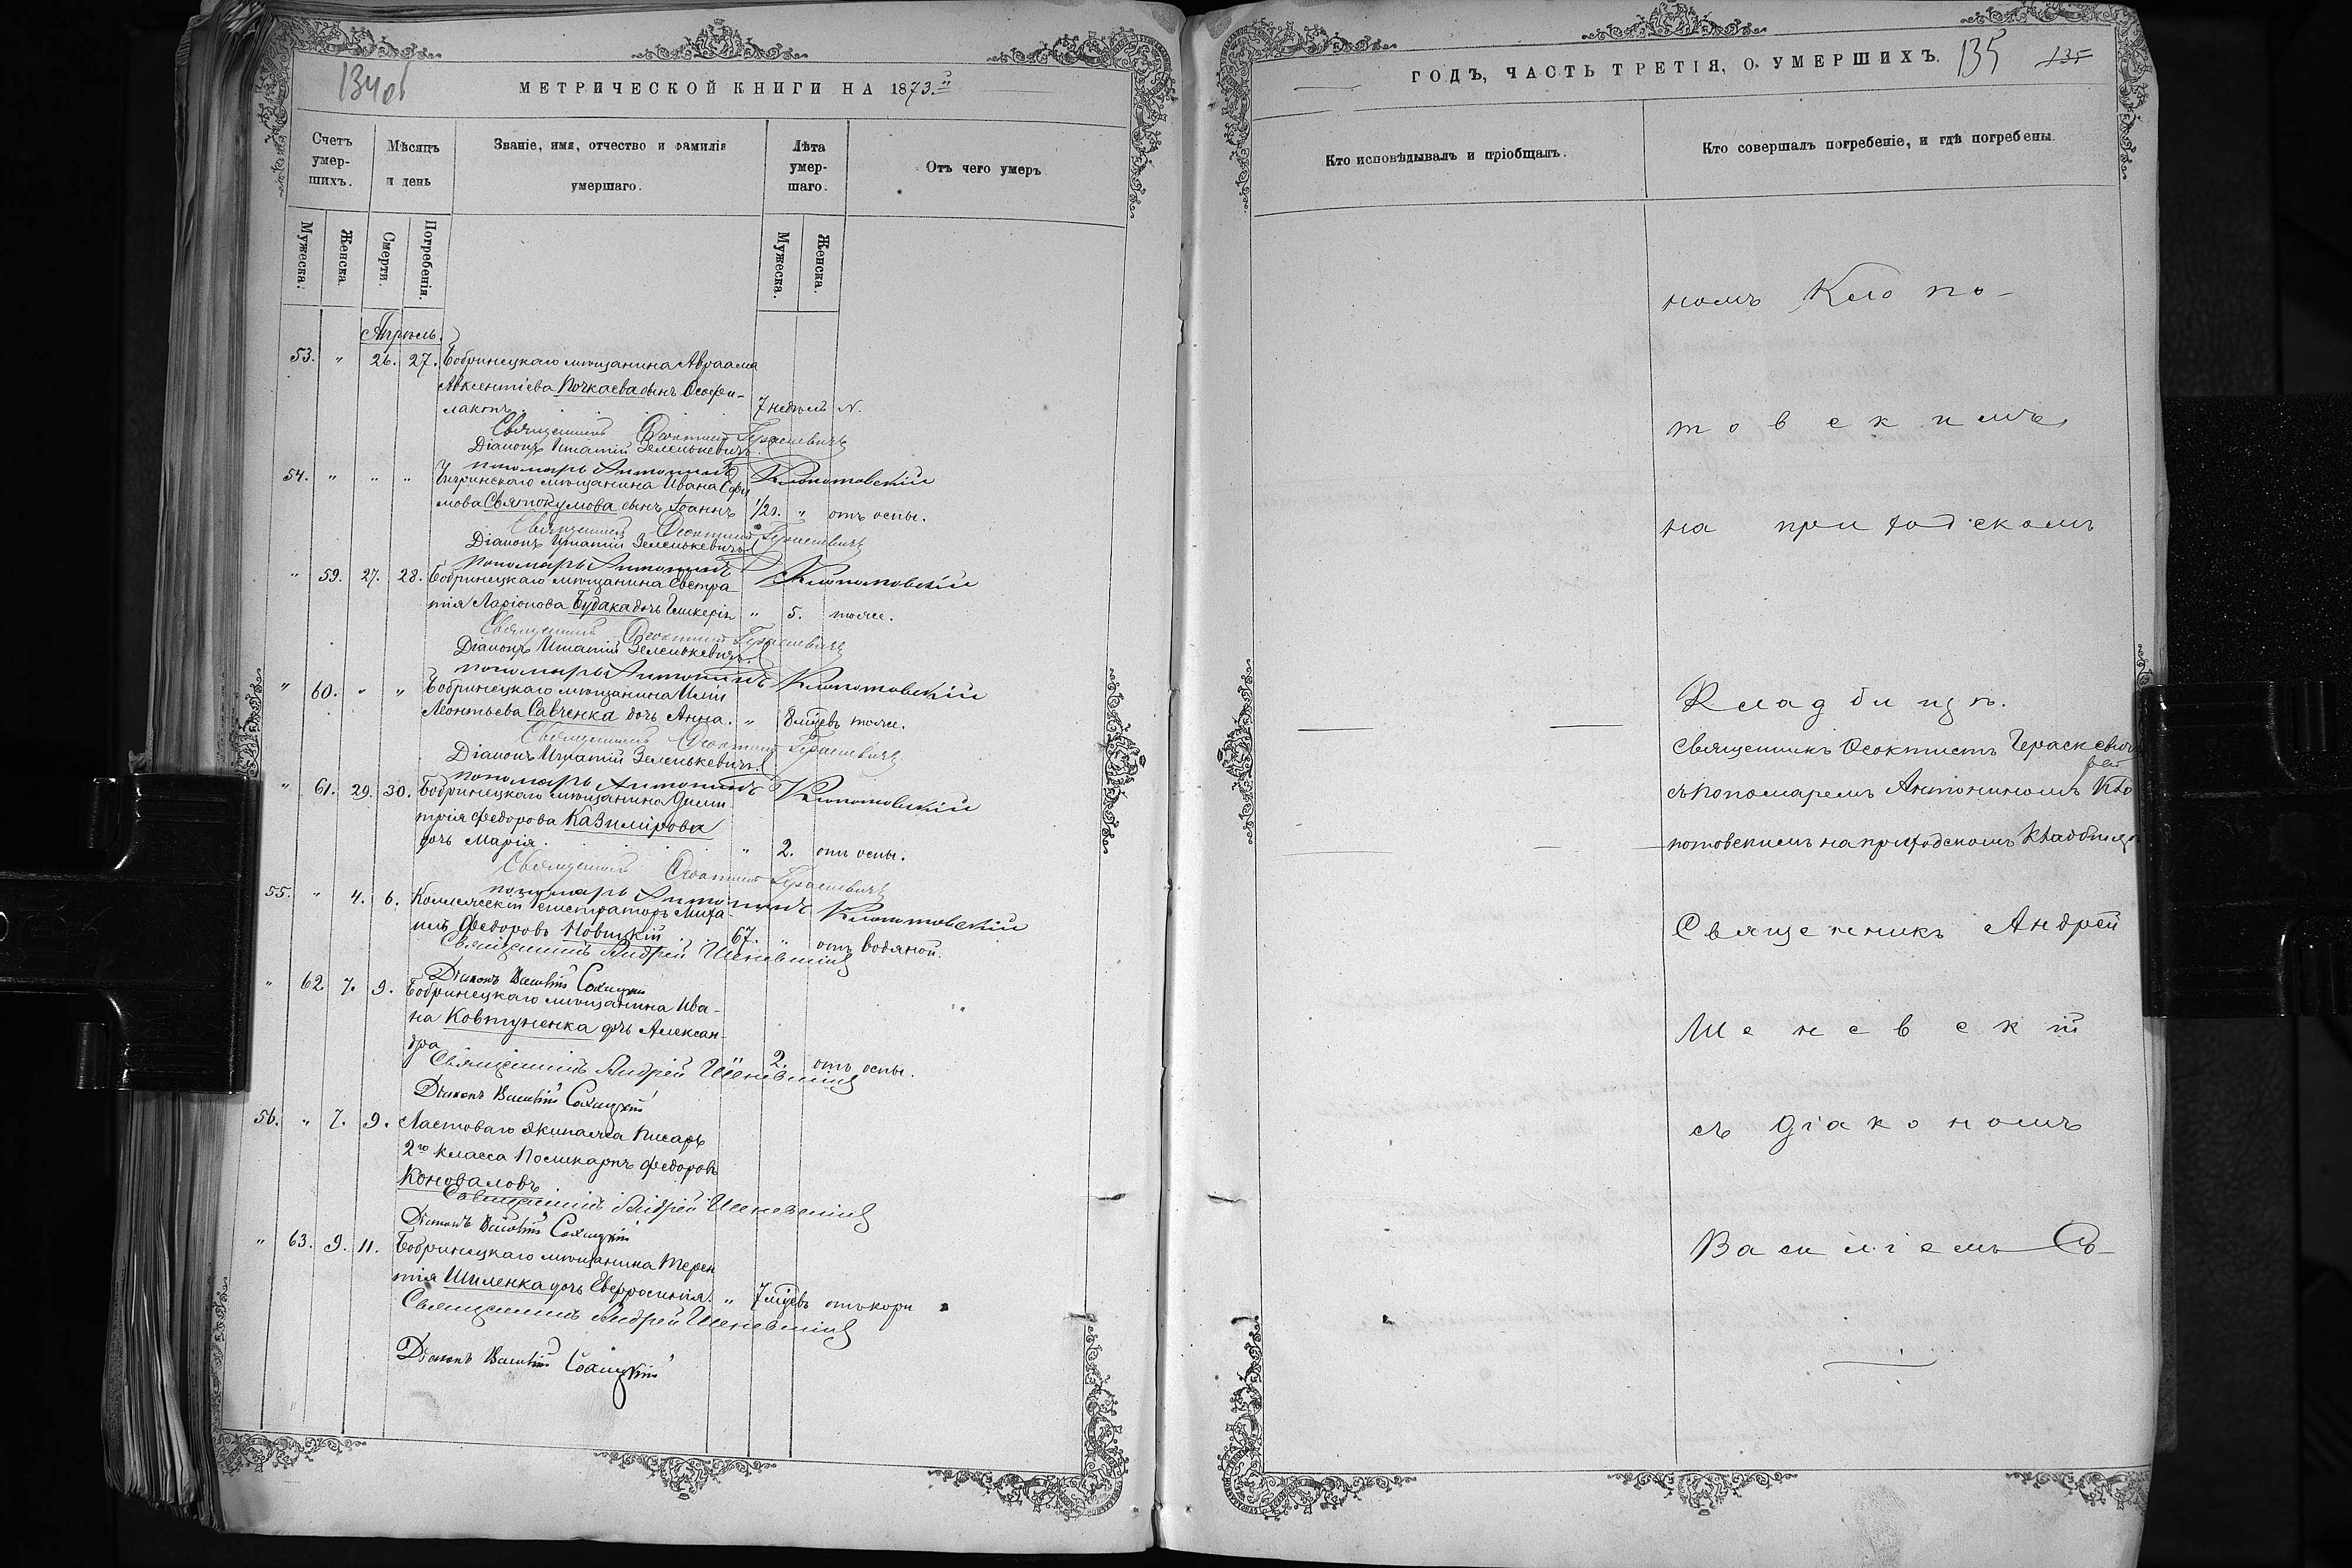 134об
МЕТРИЧЕСКОЙ КНИГИ НА 1873.й
Счетъ умер-шихъ.
Мѣсяцъ и день
Званіе, имя, отчество и фамилія умершаго.
Лѣта умер-шаго.
Отъ чего умеръ
Мужеска.
Женска.
Смерти.
Погребенія.
Мужеска.
Женска.
Апрѣль.
53. „ 26. 27. Бобринецкаго мѣщанина Авраама
Авксентіева Почкаева сынъ Ѳеофи-
лактъ. 7 недѣль N.
Священникъ Ѳеоктистъ Гераскевичъ
Діаконъ Игнатій Зеленькевичъ.
пономарь Антонинъ Клопотовскій
54. „ „ „ Чигринскаго мѣщанина Ивана Ефи
мова Святокумова сынъ Іоаннъ 1/2 г. „ отъ оспы.
Священникъ Ѳеоктистъ Гераскевичъ
Діаконъ Игнатій Зеленькевичъ
пономарь Антонинъ Клопотовскій
„ 59. 27. 28. Бобринецкаго мѣщанина Евстра
тія Ларіонова Будака дочь Гликерія „ 5. тоже.
Священникъ Ѳеоктистъ Гераскевичъ
Діаконъ Игнатій Зеленькевичъ.
пономарь Антонинъ Клопотовскій
„ 60. „ „ Бобринецкаго мѣщанина Иліи
Леонтьева Савченка дочь Анна. „ 8 мѣцевъ тоже.
Священникъ Ѳеоктистъ Гераскевичъ
Діаконъ Игнатій Зеленькевичъ.
пономарь Антонинъ Клопотовскій
„ 61. 29. 30. Бобринецкаго мѣщанина Дими
трія Федорова Казимірова
дочь Марія. „ 2. отъ оспы.
Священникъ Ѳеоктистъ Гераскевичъ
пономарь Антонинъ Клопотовскій
55. „ 4. 6. Коллежскій Регистраторъ Миха-
илъ Федоровъ Новицкій 67. „ отъ водяной.
Священникъ Андрей Шеневскій
Діаконъ Василій
„ 62 7. 9. Бобринецкаго мѣщанина Ива-
на Ковтуненка дочь Алексан-
дра 2. отъ оспы.
Священникъ Андрей Шеневскій
Діаконъ Василій
56. „ 7. 9. Ластоваго экипажа писарь
2го класса Поликарпъ Федоровъ
Коноваловъ
Священникъ Андрей Шеневскій
Діаконъ Василій
„ 63. 9. 11. Бобринецкаго мѣщанина Терен
тія Шиленка дочь Евфросинія. „ 7 мѣцевъ отъ кори
Священникъ Андрей Шеневскій
Діаконъ Василій
ГОДЪ, ЧАСТЬ ТРЕТІЯ, О УМЕРШИХЪ. 135 135
Кто исповѣдывалъ и пріобщалъ.
Кто совершалъ погребеніе, и гдѣ погребены.
номъ Клопо-
товскимъ
на приходскомъ
Кладбищѣ.
Священникъ Ѳеоктистъ Гераскевичъ
съ пономаремъ Антониномъ Кло
потовскимъ на приходскомъ кладбищѣ
Священникъ Андрей
Шеневскій
съ діакономъ
Василіемъ Со-